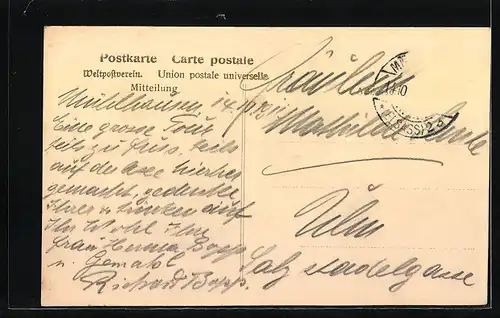 Postkarte Carte postale
Weltpostverein. Union postale universelle
Mitteilung
Mülhausen, 14.10.
Eine grosse Tour
teils zu Fuss, teils
auf der Axe hierher
gemacht, gedenke
Ihrer u. trinken auf
Ihr Wohl Ihr
Frau Emma Bopp
u. Gemahl
Richard Bopp.
Fräulein
Mathilde
Ulm
Salzstadelgasse
(ELSASS) 2